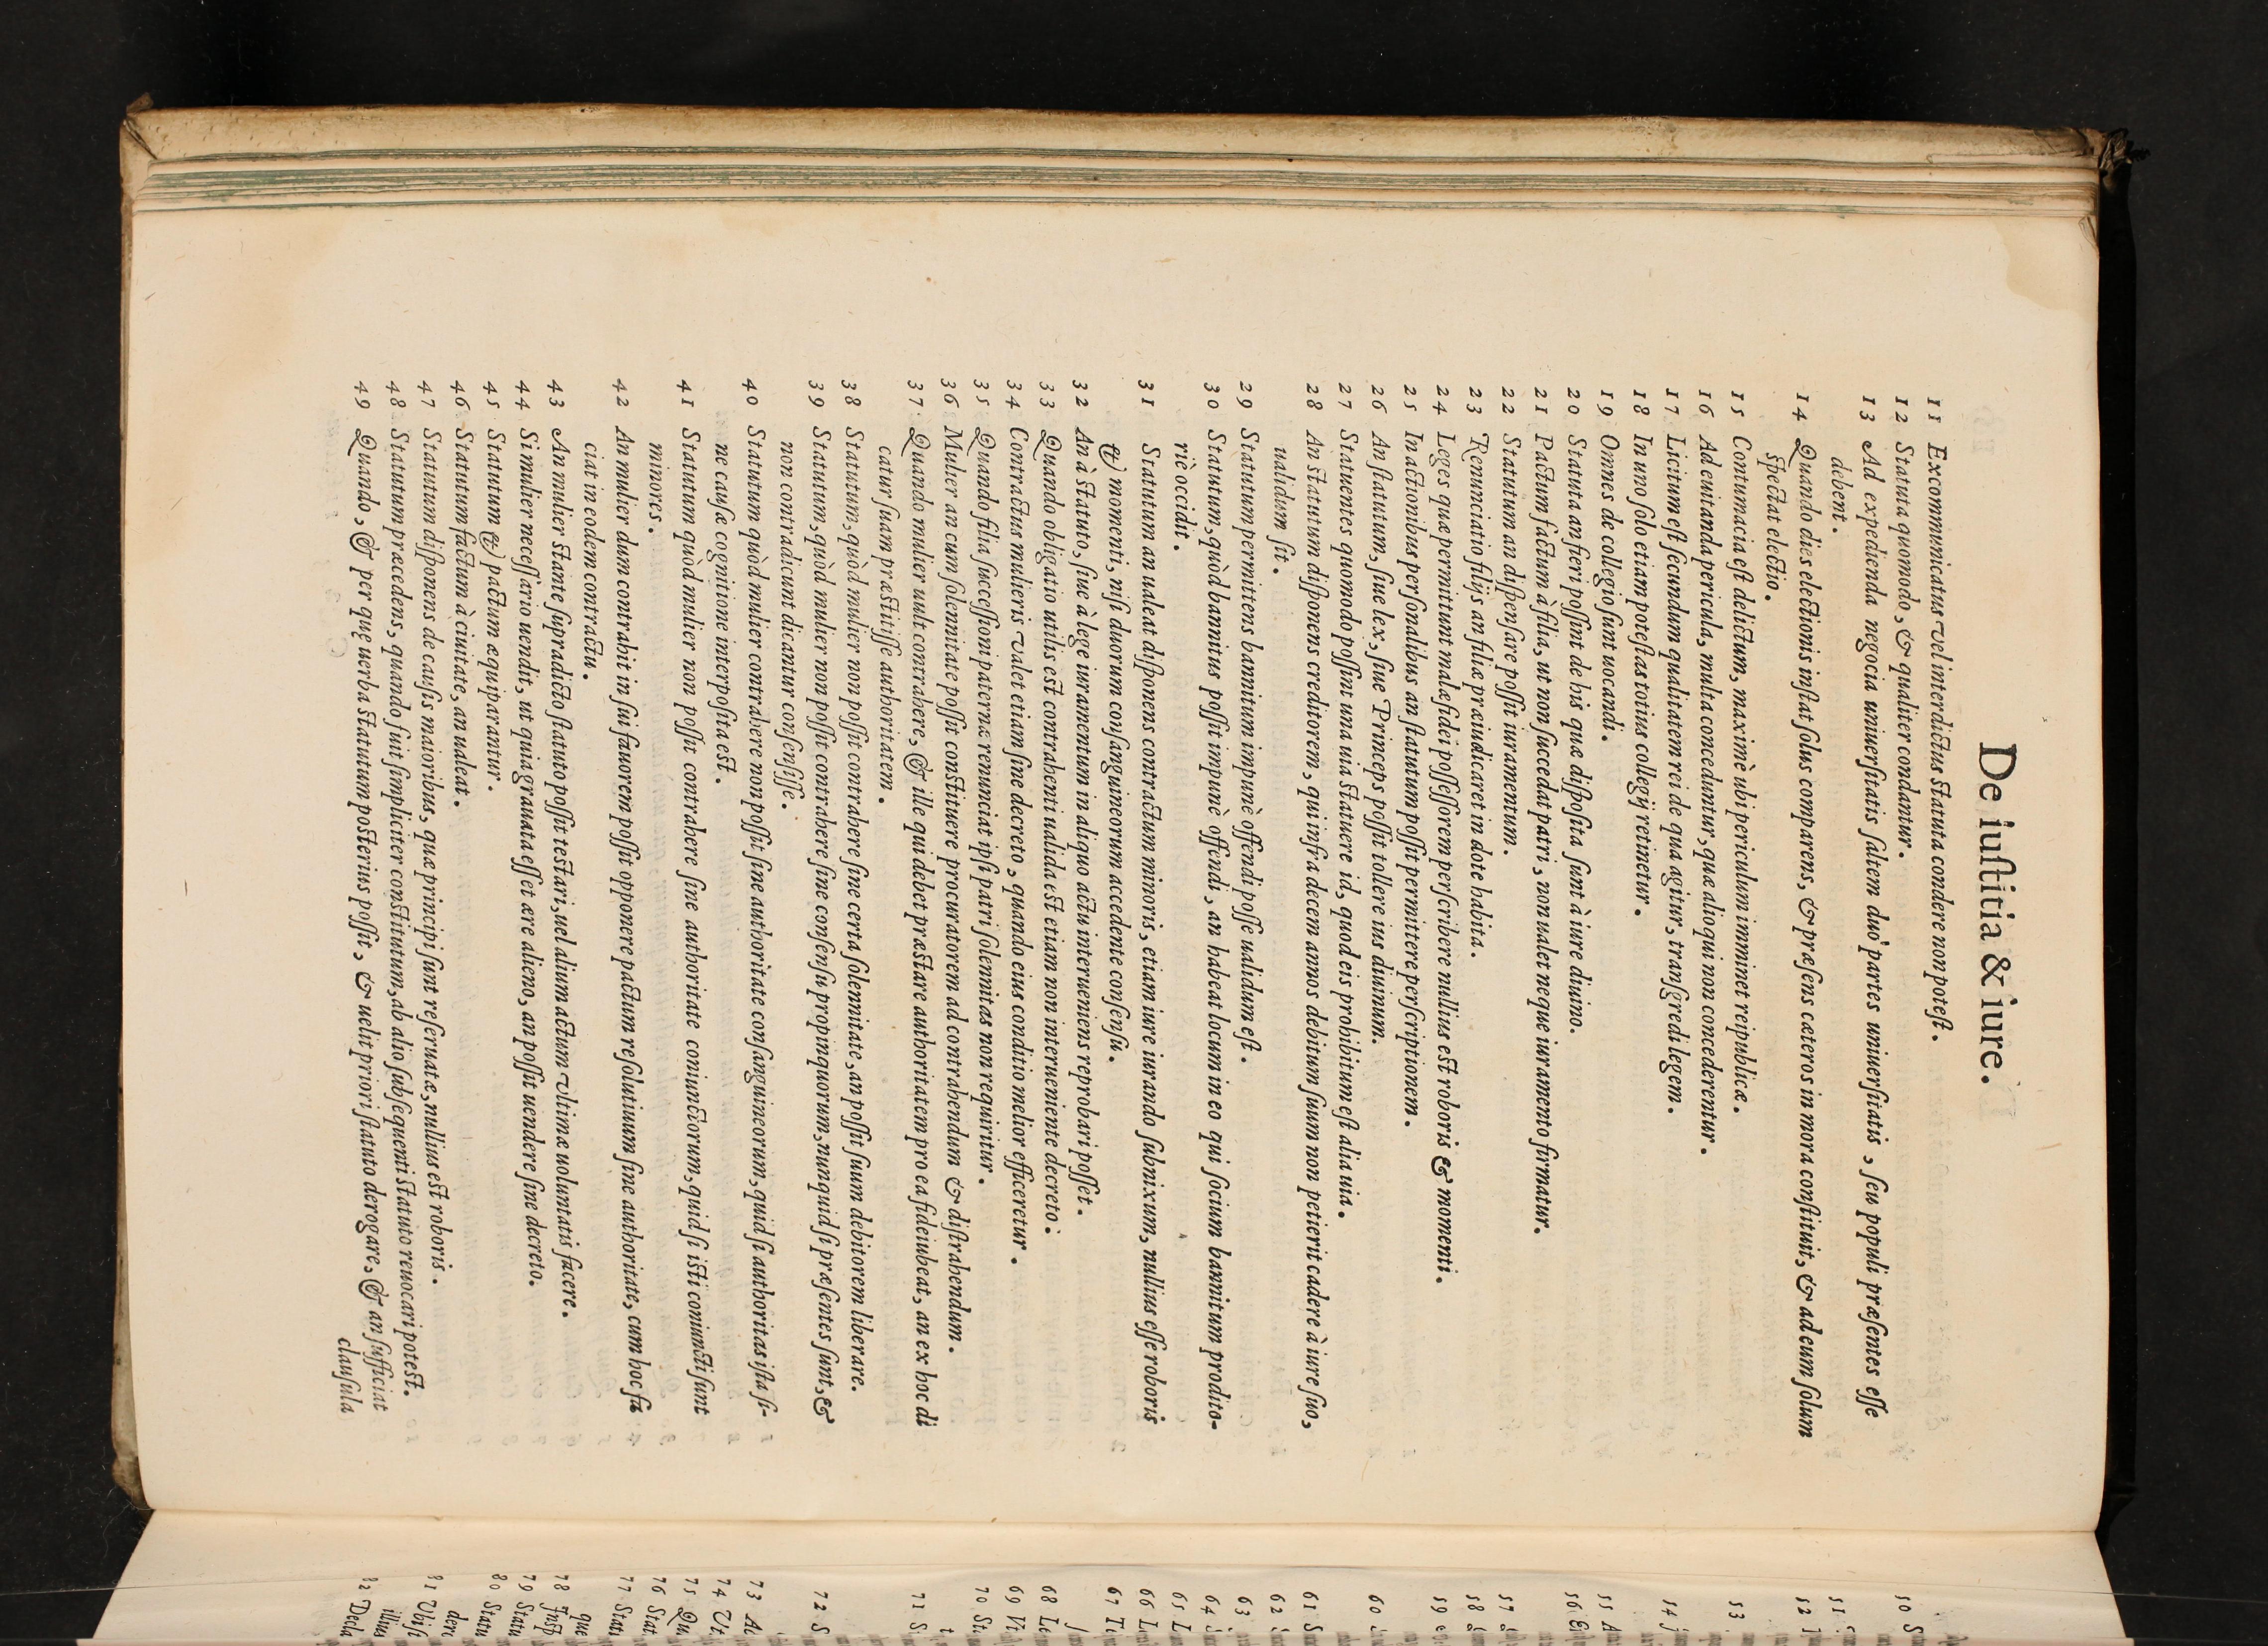 De iuſtitia & iure.
11 Excommunicatus vel interdictus ſtatuta condere non poteſt.
12 Statuta quomodo, & qualiter condantur.
13 Ad expedienda negocia uniuerſitatis ſaltem duo partes uniuerſitatis, ſeu populi præſentes eſſe
debent.
14 Quando dies electionis inſtat ſolus comparens, & præſens cæteros in mora conſtituit, & ad eum ſolum
ſpectat electio.
15 Contumacia eſt delictum, maximè ubi periculum imminet reipublicæ.
16 Ad euitanda pericula, multa conceduntur, quæ alioqui non concederentur.
17 Licitum eſt ſecundum qualitatem rei de qua agitur, tranſgredi legem.
18 In uno ſolo etiam poteſtas totius collegij retinetur.
19 Omnes de collegio ſunt uocandi.
20 Statuta an fieri poſſint de his quæ diſpoſita ſunt à iure diuino.
21 Pactum factum à filia, ut non ſuccedat patri, non ualet neque iuramento firmatur.
22 Statutum an diſpenſare poſſit iuramentum.
23 Renunciatio filijs an filiæ præiudicaret in dote habita.
24 Leges quæ permittunt malæ fidei poſſeſſorem perſcribere nullius eſt roboris & momenti.
25 In actionibus perſonalibus an ſtatutum poſſit permittere perſcriptionem.
26 An ſtatutum, ſiue lex, ſiue Princeps poſſit tollere ius diuinum.
27 Statuentes quomodo poſſint una uia ſtatuere id, quod eis prohibitum eſt alia uia.
28 An ſtatutum diſponens creditorem, qui infra decem annos debitum ſuum non petierit cadere à iure ſuo,
ualidum ſit.
29 Statutum permittens bannitum impunè offendi poſſe ualidum eſt.
30 Statutum, quòd bannitus poſſit impunè offendi, an habeat locum in eo qui ſocium bannitum prodito-
riè occidit.
31 Statutum an ualeat diſponens contractum minoris, etiam iure iurando ſubnixum, nullius eſſe roboris
& momenti, niſi duorum conſanguineorum accedente conſenſu.
32 An à ſtatuto, ſiue à lege iuramentum in aliquo actu interueniens reprobari poſſet.
33 Quando obligatio utilis eſt contrahenti ualida eſt etiam non interueniente decreto.
34 Contractus mulieris valet etiam ſine decreto, quando eius conditio melior efficeretur.
35 Quando filia ſucceſſioni paternæ renunciat ipſi patri ſolemnitas non requiritur.
36 Mulier an cum ſolennitate poſſit conſtituere procuratorem ad contrahendum & diſtrahendum.
37 Quando mulier uult contrahere, & ille qui debet præſtare authoritatem pro ea fideiubeat, an ex hoc di
catur ſuam præſtitiſſe authoritatem.
38 Statutum, quòd mulier non poſſit contrahere ſine certa ſolemnitate, an poſſit ſuum debitorem liberare.
39 Statutum, quòd mulier non poſſit contrahere ſine conſenſu propinquorum, nunquid ſi præſentes ſunt, &
non contradicunt dicantur conſenſiſſe.
40 Statutum quòd mulier contrahere non poſſit ſine authoritate conſanguineorum, quid ſi authoritas iſta ſi-
ne cauſæ cognitione interpoſita eſt.
41 Statutum quòd mulier non poſſit contrahere ſine authoritate coniunctorum, quid ſi iſti coniuncti ſunt
minores.
42 An mulier dum contrahit in ſui fauorem poſſit opponere pactum reſolutiuum ſine authoritate, cum hoc fa
ciat in eodem contractu.
43 An mulier ſtante ſupradicto ſtatuto poſſit teſtari, uel alium actum vltimæ uoluntatis facere.
44 Si mulier neceſſario uendit, ut quia grauata eſſet ære alieno, an poſſit uendere ſine decreto.
45 Statutum & pactum æquiparantur.
46 Statutum factum à ciuitate, an ualeat.
47 Statutum diſponens de cauſis maioribus, quæ principi ſunt reſeruatæ, nullius eſt roboris.
48 Statutum præcedens, quando fuit ſimpliciter conſtitutum, ab alio ſubſequenti ſtatuto reuocari poteſt.
49 Quando, & per quę uerba ſtatutum poſterius poſſit, & uelit priori ſtatuto derogare, & an ſufficiat
clauſula
50 S
51
52
53
54
55 A
56
57
58
59
60
61 S
62
63
64
65 L
66 L
67 T
68 Le
69 Vi
70 St
71 S
72 S
73 Ac
74 Vt
75 Qu
76 Stat
77 Stat
78
que
79 Statu
80 Statu
dere
81 Vbi ſi
illius
82 Decla